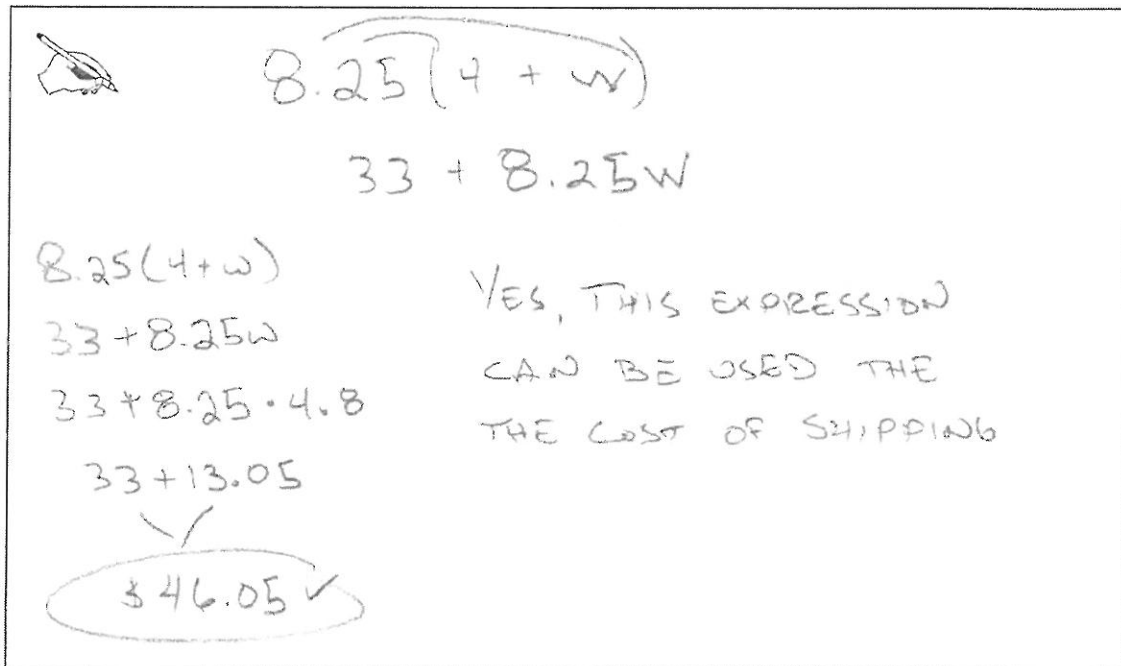 8.25(4 + w)
33 + 8.25w
8.25(4+w)
33+8.25w
33+8.25·4.8
33+13.05
$46.05 ✓
YES, THIS EXPRESSION
CAN BE USED THE
THE COST OF SHIPPING